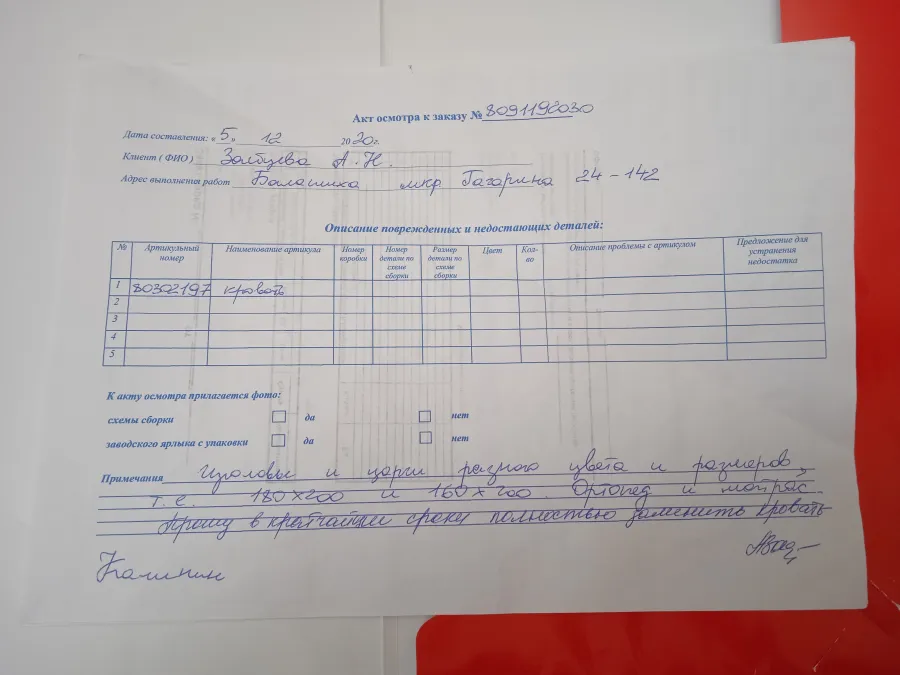 Акт осмотра к заказу № 8091198030
Дата составления: « 5 » 12 20 20 г.
Клиент ( ФИО ) А. Н.
Адрес выполнения работ Балашиха мкр Гагарина 24 - 142
Описание поврежденных и недостающих деталей:
№ Артикульный номер Наименование артикула Номер коробки Номер детали по схеме сборки Размер детали по схеме сборки Цвет Кол-во Описание проблемы с артикулом Предложение для устранения недостатка
1 80302197 кровать
2
3
4
5
К акту осмотра прилагается фото:
схемы сборки да нет
заводского ярлыка с упаковки да нет
Примечания Изголовье и царги разного цвета и размеров,
т.е. 180х200 и 160х200. Ортопед и матрас.
Прошу в кратчайшие сроки полностью заменить кровать
Калинин